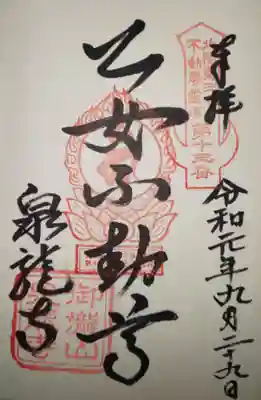 奉拝
令和元年九月二十九日
不動尊霊場
乙女不動尊
泉龍寺
御瀧山
泉龍寺